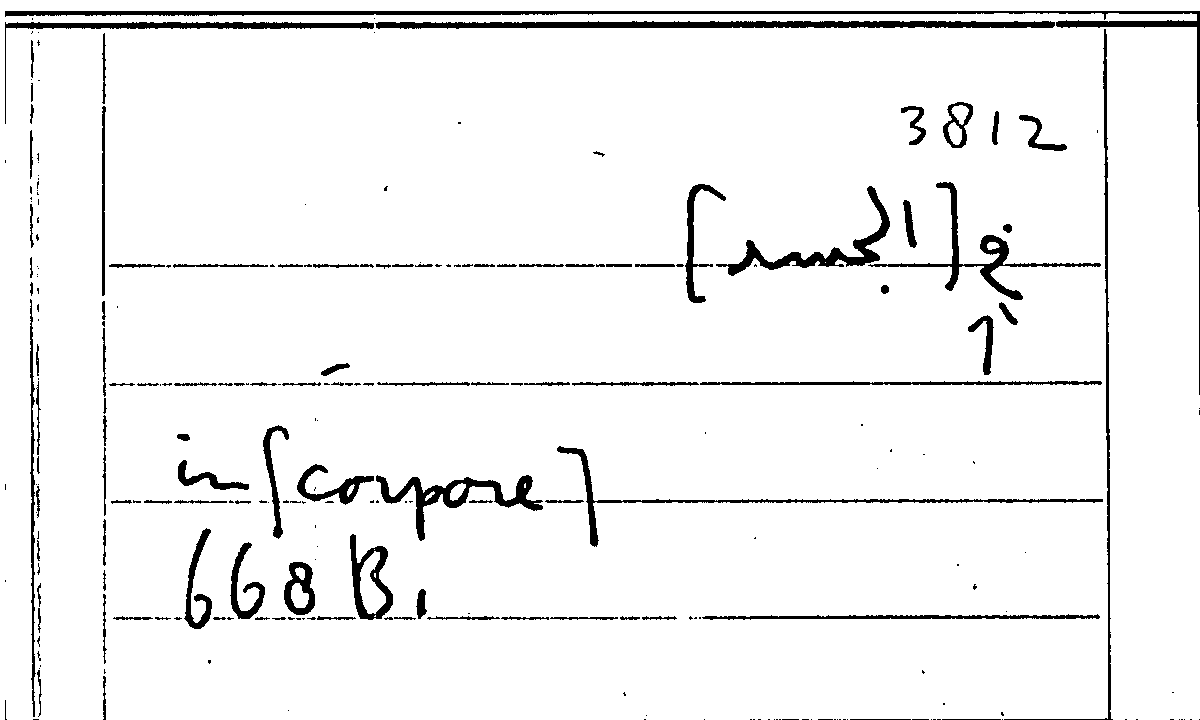 3812
في [الجسم]
in [corpore]
668 B 1